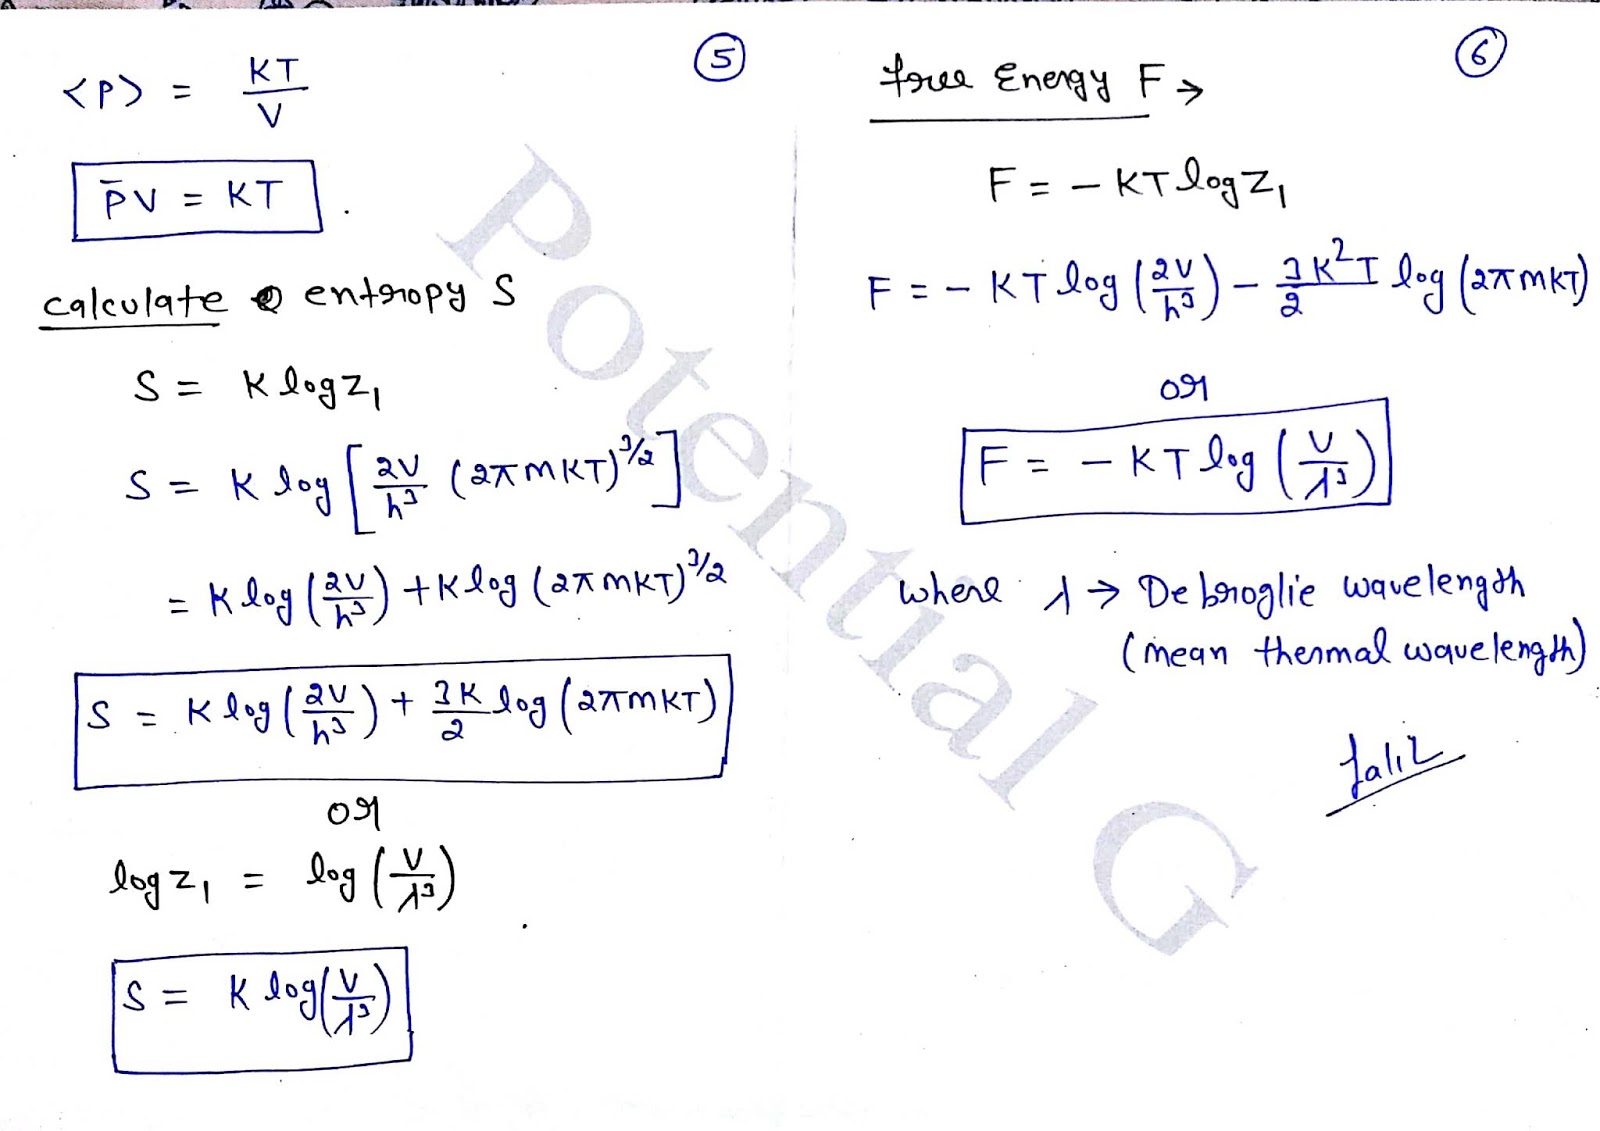 5
<P> = KT/V
P̄V = KT.
calculate entropy S
S = K log Z₁
S = K log [2V/h³ (2πmKT)^3/2]
= K log (2V/h³) + K log (2πmKT)^3/2
S = K log (2V/h³) + 3K/2 log (2πmKT)
or
log Z₁ = log (V/λ³)
S = K log (V/λ³)
6
free Energy F →
F = - KT log Z₁
F = - KT log (2V/h³) - 3K²T/2 log (2πmKT)
or
F = - KT log (V/λ³)
where λ → De broglie wavelength
(mean thermal wavelength)
Potential G